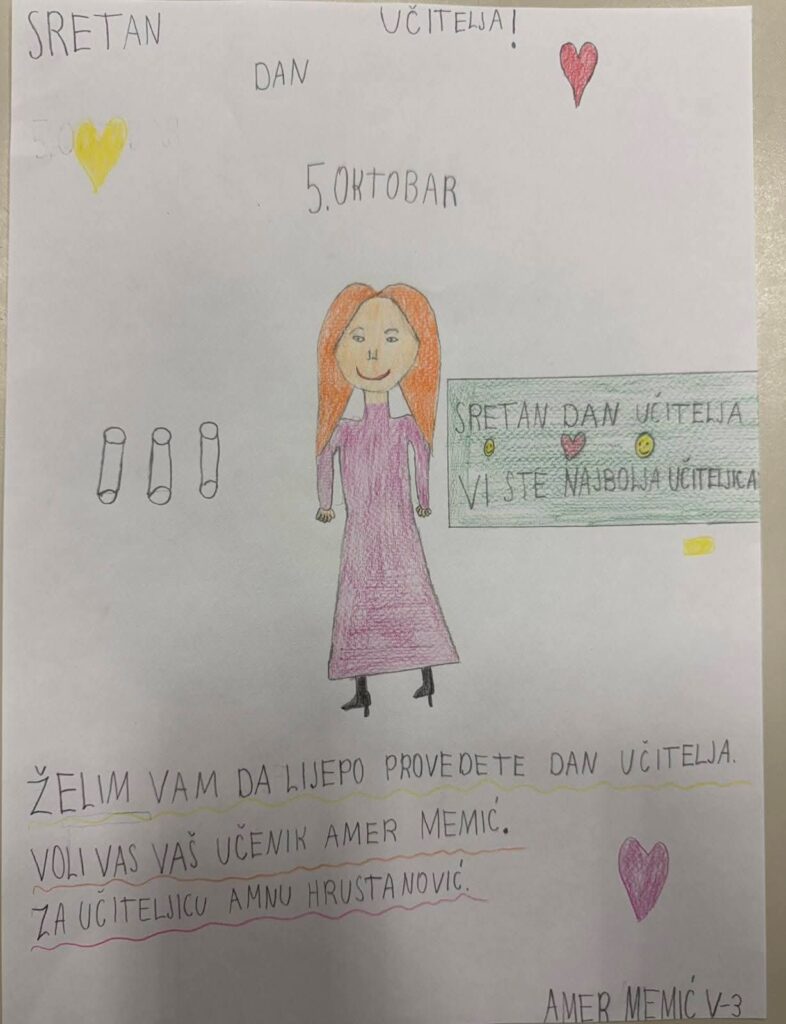 SRETAN DAN UČITELJA!
5. OKTOBAR
SRETAN DAN UČITELJA
VI STE NAJBOLJA UČITELJICA
ŽELIM VAM DA LIJEPO PROVEDETE DAN UČITELJA.
VOLI VAS VAŠ UČENIK AMER MEMIĆ.
ZA UČITELJICU AMNU HRUSTANOVIĆ.
AMER MEMIĆ V-3